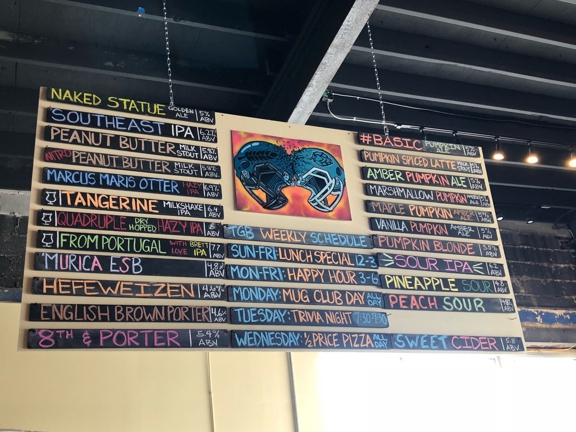 NAKED STATUE GOLDEN ALE 5% ABV
SOUTHEAST IPA 6.2% ABV
PEANUT BUTTER MILK STOUT ABV
NITRO PEANUT BUTTER MILK STOUT ABV
MARCUS MARIS OTTER HAZY IPA 6.9% ABV
TANGERINE MILKSHAKE IPA 6.4 ABV
QUADRUPLE DRY HOPPED HAZY IPA ABV
FROM PORTUGAL WITH LOVE BRETT IPA 7.7 ABV
'MURICA ESB ABV
HEFEWEIZEN ABV
ENGLISH BROWN PORTER ABV
8TH & PORTER 5.4% ABV
TGB WEEKLY SCHEDULE
SUN-FRI: LUNCH SPECIAL 12-3
MON-FRI: HAPPY HOUR 3-6
MONDAY: MUG CLUB DAY ALL DAY
TUESDAY: TRIVIA NIGHT 7:30-9:30
WEDNESDAY: ½ PRICE PIZZA ALL DAY
#BASIC PUMPKIN ALE 5% ABV
PUMPKIN SPICED LATTE
AMBER PUMPKIN ALE ABV
MARSHMALLOW PUMPKIN
MAPLE PUMPKIN AMBER ALE
VANILLA PUMPKIN AMBER ALE
PUMPKIN BLONDE
SOUR IPA ABV
PINEAPPLE SOUR ABV
PEACH SOUR ABV
SWEET CIDER 5.8 ABV